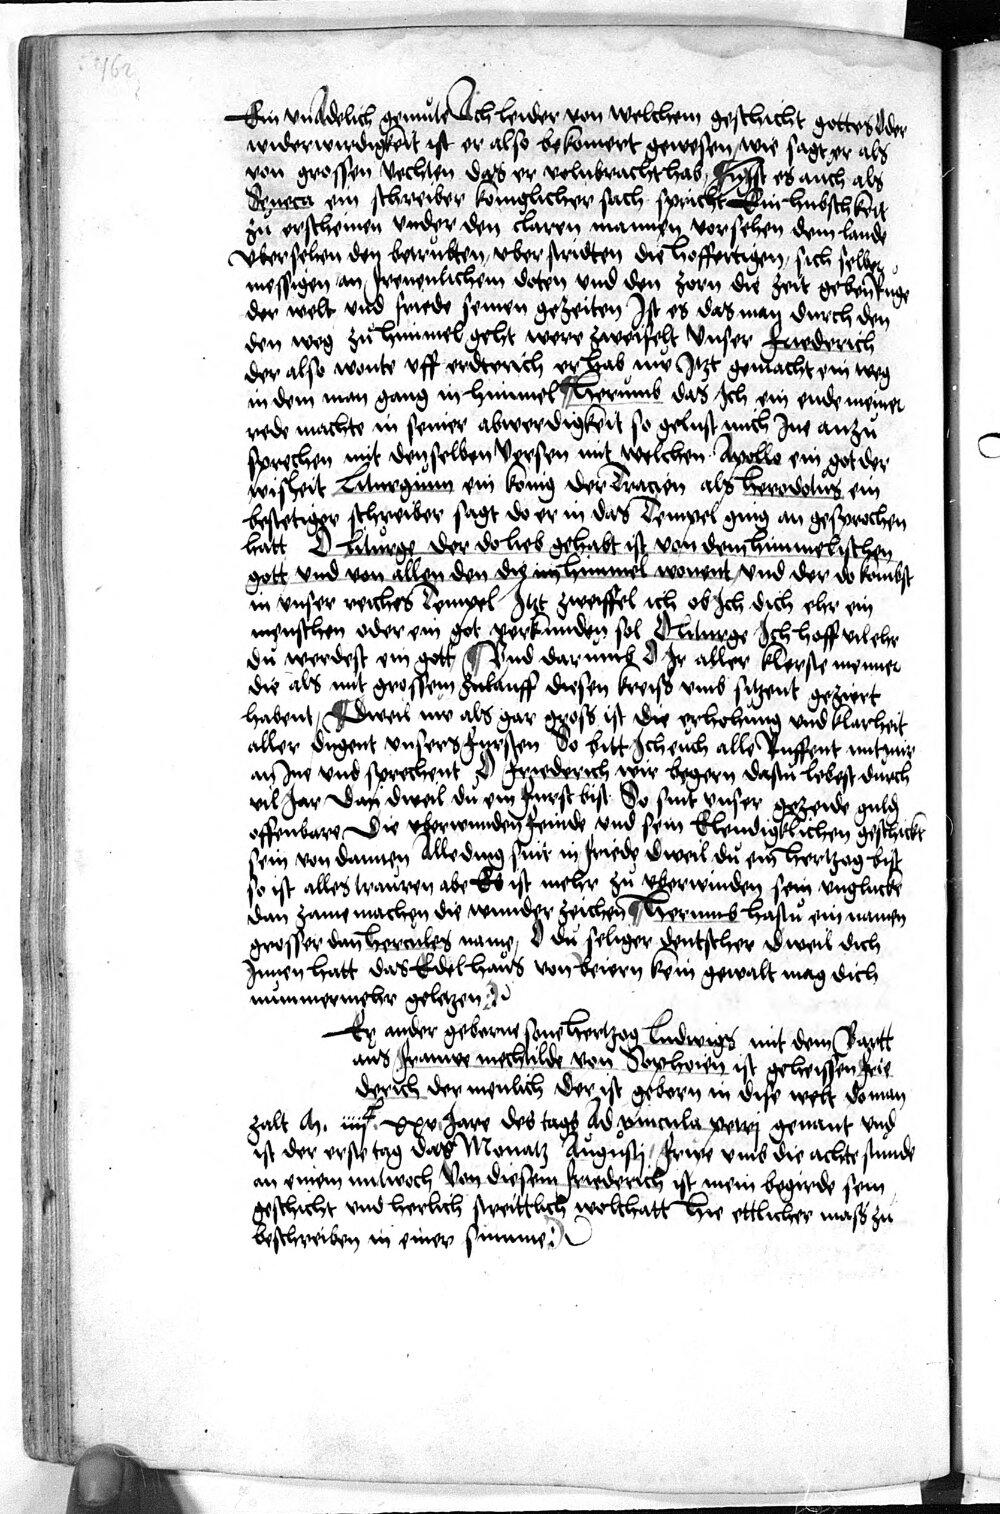 162
Ein unadelich gemute Ach leider von welchem geschicht gottes oder
widerwirdigkeit ist er also bekomert gewesen wie sagt er als
von grossen vechten das er volnbracht hab, Sunst es auch als
Seneca ein schreiber koniglicher sach spricht Ein hubschkeit
zu erscheinen under den claren mannen vorsehen dem lande
ubersehen den betrubten, uberstridten die hoffertigen, sich selber
messigen an freuenlichem doten und den zorn die zeit geben Ruge
der welt und friede seinen gezeiten Ist es das man durch den
den weg zu himmel geht were zweifelt Unser friederich
der also wonte uff erdterich er hab ine Itzt gemacht ein weg
in dem man gang in himmel Herumb das Ich ein ende meiner
rede machte in seiner abwerdigkeit so gelust mich Ine an zu
sprechen mit denselben Versen mit welchen Apollo ein got der
wisheit Liturgum ein konig der Tracien als Herodotus ein
bestetiger schreiber sagt do er in das Tempel ging an gesprochen
hatt O liturge der do lieb gehabt ist von dem himmelischen
gott und von allen den die im himmel wonent, und der do kombst
in unser reiches Tempel Itzt zweiffel ich ob Ich dich ehr ein
menschen oder ein got verkunden sol O liturge Ich hoff vil ehr
du werdest ein gott Und darumb O Ir aller klerste menner
die als mit grossem zulauff diesen kreiss umb sitzent geziert
habent, Dweil nu als gar gross ist die erhohung und klarheit
aller dugent unsers fursten So bitt Ich euch alle Ruffent mit mir
an Ine und sprechent O friederich wir begern dastu lebest durch
vil Jar Dan dweil du ein furst bist So sint unser gezeide guld
offenbare Die uberwunden feinde und sein Elendigklichen geschickt
sein von dannen Alle ding sint in friede dweil du ein hertzog bist
so ist alles trauren abe Es ist mehr zu uberwinden sein unglucke
dan zame machen die wunder zeichen Herumb hastu ein namen
grosser dan hercules name, O du seliger deutscher dweil dich
Innen hatt das Edel haus von beiern kein gewalt mag dich
nummermehr geletzen
Er ander geborne sone hertzog Ludwigs mit dem Bartt
aus frauwe mechtilde von Sophoien ist geheissen frie
derich der menlich Der ist geborn in dise welt do man
zalt M. iiiic xxv Jare des tags Ad vincula petri genant und
ist der erste tag das Monatz Augusti, frwe umb die achte stunde
an einem mitwoch Von diesem friederich ist mein begirde sein
geschicht und herlich streittlich wolthatt hie ettlicher mass zu
beschreiben in einer summe